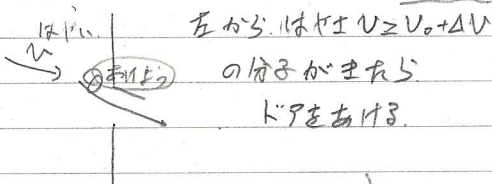 はやい
v
あけよう
左から はやさ v ≥ v₀+Δv
の分子がきたら
ドアをあける.